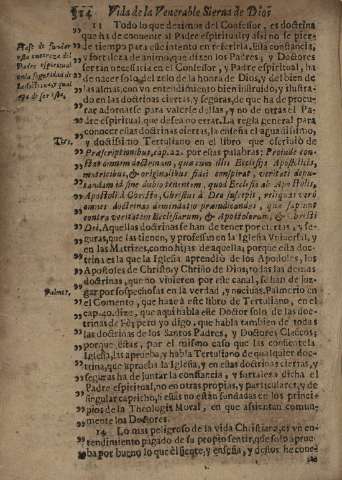 514 Vida de la Venerable Sierva de Dios
13 Todo lo que dezimos del Confessor, es doctrina
que ha de convenir al Padre espiritual; y assi no se pier-
de tiempo para este intento en referirla. Essa constancia,
y fortaleza de animo, que dizen los Padres, y Doctores
ser tan necessaria en el Confessor, y Padre espiritual, ha
de nacer solo del zelo de la honra de Dios, y del bien de
las almas, con vn entendimiento bien instruido, y ilustra-
do en las doctrinas ciertas, y seguras, de que ha de procu-
rar adornarse para valerse dellas, y no de otras el Pa-
dre espiritual, que desea no errar. La regla general para
conocer estas doctrinas ciertas, la enseña el agudissimo,
y doctissimo Tertuliano en el libro que escrivió de
Præscriptionibus, cap. 21. por estas palabras: Proinde con-
stat omnem doctrinam, quæ cum illis Ecclesijs Apostolicis,
matricibus, & originalibus fidei conspirat, veritati depu-
tandam id sine dubio tenentem, quod Ecclesia ab Apostolis,
Apostoli à Christo, Christus à Deo suscepit, reliquas verò
omnes doctrinas de mendacio præiudicandas, quæ sapiunt
contra veritatem Ecclesiarum, & Apostolorum, & Christi
Dei. Aquellas doctrinas se han de tener por ciertas, y se-
guras, que las tienen, y professan en la Iglesia Vniversal, y
en las Matrizes, como hijas de aquella; porque essa doc-
trina es la que la Iglesia aprendiò de los Apostoles, los
Apostoles de Christo, y Christo de Dios, todas las demás
doctrinas, que no vinieren por este canal, se han de juz-
gar por sospechosas en la verdad, y nocivas. Palmerio en
el Comento, que haze à este libro de Tertuliano, en el
cap. 40. dize, que aqui habla este Doctor solo de las doc-
trinas de Fè; pero yo digo, que habla tambien de todas
las doctrinas de los Santos Padres, y Doctores Clasicos;
porque estas, por el mismo caso que las consiente la
Iglesia, las aprueba, y habla Tertuliano de qualquier doc-
trina, que aprueba la Iglesia, y en essas doctrinas ciertas, y
seguras ha de juntar la constancia, y fortaleza dicha el
Padre espiritual, no en otras propias, y particulares, y de
singular capricho, si essas no están fundadas en los princi-
pios de la Theologia Moral, en que assientan comun-
mente los Doctores.
14 Lo mas peligroso de la vida Christiana, es vn en-
tendimiento pagado de su propio sentir, que solo aprue-
ba por bueno lo que èl siente, y enseña, y destos he cono-
Tert.
Palmer.